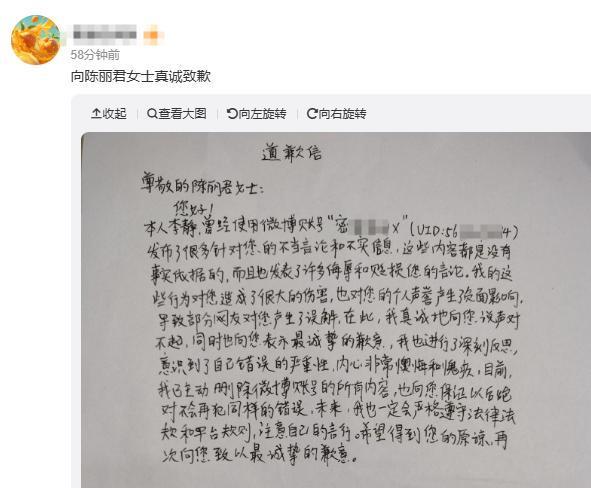 58分钟前
向陈丽君女士真诚致歉
收起 查看大图 向左旋转 向右旋转
道歉信
尊敬的陈丽君女士：
您好！
本人李静，曾经使用微博账号“密 x”（UID:56 4）
发布了很多针对您的不当言论和不实信息，这些内容都是没有
事实依据的，而且也发表了许多侮辱和贬损您的言论。我的这
些行为对您造成了很大的伤害，也对您的个人声誉产生了负面影响，
导致部分网友对您产生了误解，在此，我真诚地向您说声对
不起，同时也向您表示最诚挚的歉意，我也进行了深刻反思，
意识到了自己错误的严重性，内心非常懊悔和愧疚，目前，
我已主动删除微博账号的所有内容，也向您保证以后绝
对不会再犯同样的错误，未来，我也一定会严格遵守法律法
规和平台规则，注意自己的言行。希望得到您的原谅，再
次向您致以最诚挚的歉意。